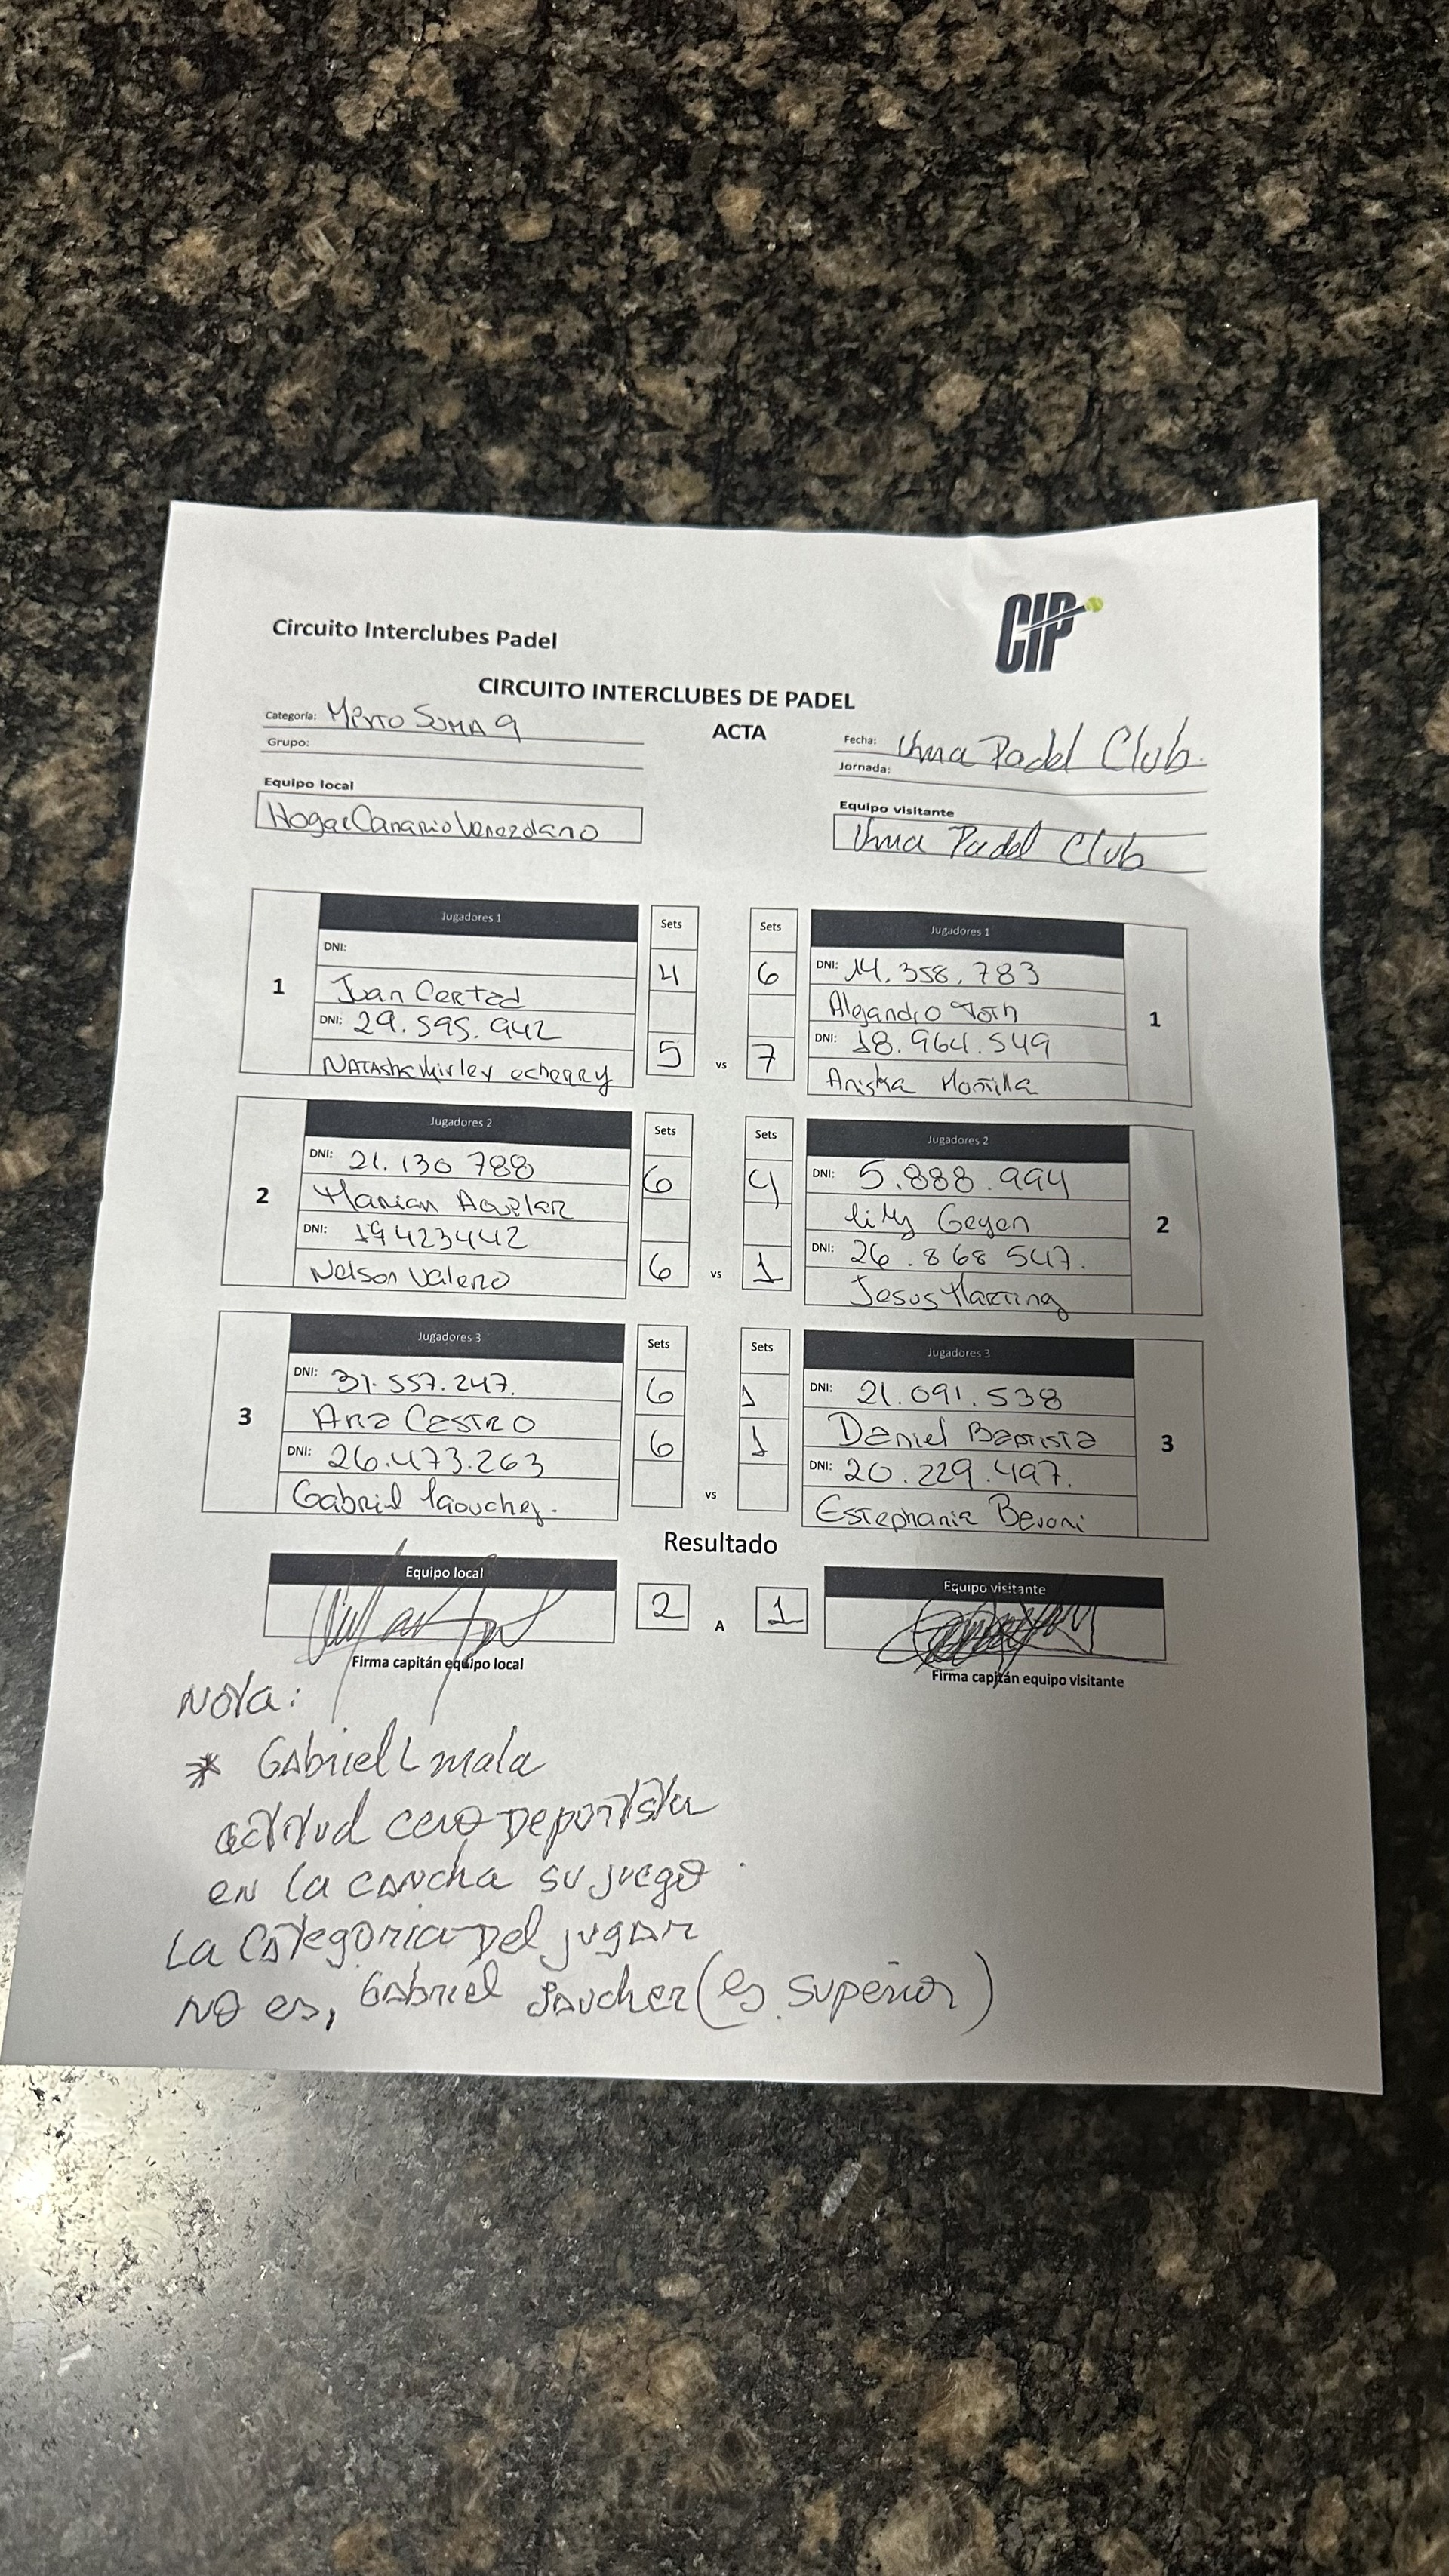 Circuito Interclubes Padel
CIP
CIRCUITO INTERCLUBES DE PADEL
ACTA
Categoría: Mixto Suma 9
Grupo:
Fecha: Uma Padel Club
Jornada:
Equipo local
Hogar Canario Venezolano
Equipo visitante
Uma Padel Club
1
Jugadores 1
DNI:
Juan Certad
DNI: 29.595.942
Natasha Shirley
Sets
4
5
vs
Sets
6
7
Jugadores 1
DNI: 14.358.783
Alejandro
DNI: 18.964.549
1
2
Jugadores 2
DNI: 21.130 788
Marian Aguilar
DNI: 19423442
Nelson Valero
Sets
6
6
vs
Sets
4
1
Jugadores 2
DNI: 5.888.994
lily
DNI: 26.868 547.
Jesus
2
3
Jugadores 3
DNI: 31.557.247.
Ana Castro
DNI: 26.473.263
Gabriel
Sets
6
6
vs
Sets
1
1
Jugadores 3
DNI: 21.091.538
Daniel Baptista
DNI: 20.229.497.
Estephania
3
Resultado
Equipo local
2
A
1
Equipo visitante
Firma capitán equipo local
Firma capitán equipo visitante
Nota:
* Gabriel L mala
actitud cero Deportista
en la cancha su juego
La Categoria Del jugar
NO es, Gabriel (es superior)